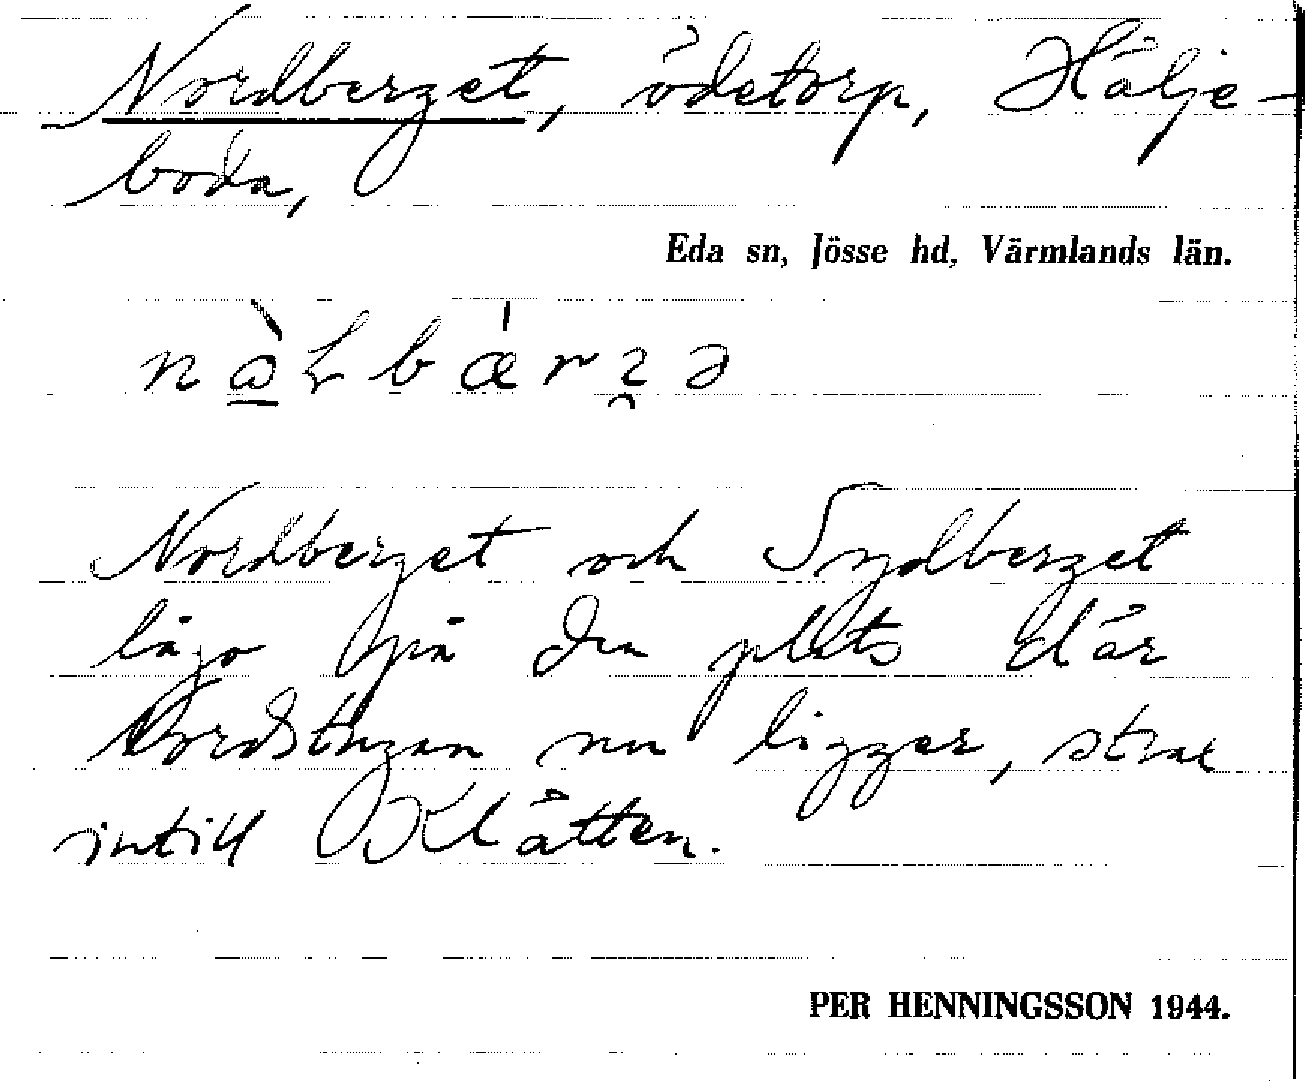 Nordberget, ödetorp, Hälje-
boda,
Eda sn, Jösse hd, Värmlands län.
Nordberget och Sydberget
lågo på den plats där
Nordstugan nu ligger, strax
intill Klätten.
PER HENNINGSSON 1944.